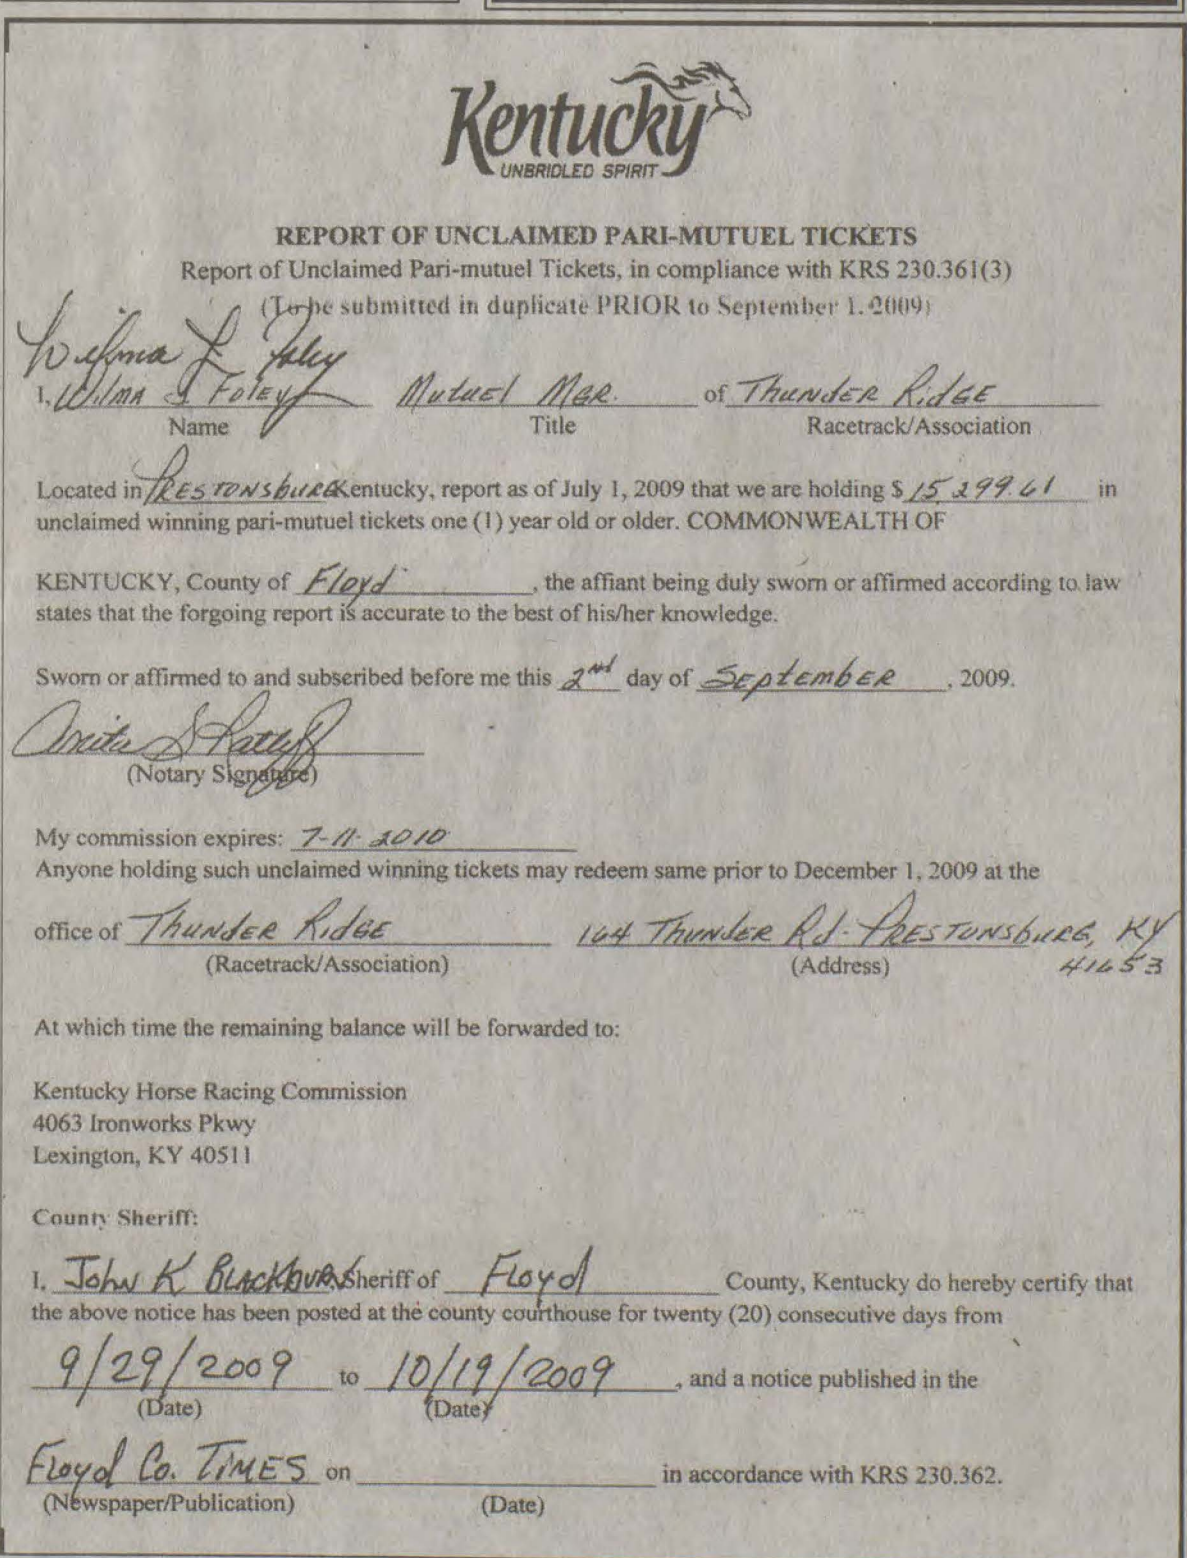 Kentucky
UNBRIDLED SPIRIT
REPORT OF UNCLAIMED PARI-MUTUEL TICKETS
Report of Unclaimed Pari-mutuel Tickets, in compliance with KRS 230.361(3)
(To be submitted in duplicate PRIOR to September 1, 2009)
Wilma L Foley
I, Wilma L Foley Mutuel Mgr. of Thunder Ridge
Name Title Racetrack/Association
Located in Prestonsburg Kentucky, report as of July 1, 2009 that we are holding $ 15,299.61 in
unclaimed winning pari-mutuel tickets one (1) year old or older. COMMONWEALTH OF
KENTUCKY, County of Floyd, the affiant being duly sworn or affirmed according to law
states that the forgoing report is accurate to the best of his/her knowledge.
Sworn or affirmed to and subscribed before me this 2nd day of September, 2009.
Anita S Ratliff
(Notary Signature)
My commission expires: 7-11-2010
Anyone holding such unclaimed winning tickets may redeem same prior to December 1, 2009 at the
office of Thunder Ridge 164 Thunder Rd- Prestonsburg, KY
(Racetrack/Association) (Address) 41653
At which time the remaining balance will be forwarded to:
Kentucky Horse Racing Commission
4063 Ironworks Pkwy
Lexington, KY 40511
County Sheriff:
I, John K Blackburn Sheriff of Floyd County, Kentucky do hereby certify that
the above notice has been posted at the county courthouse for twenty (20) consecutive days from
9/29/2009 to 10/19/2009, and a notice published in the
(Date) (Date)
Floyd Co. TIMES on in accordance with KRS 230.362.
(Newspaper/Publication) (Date)